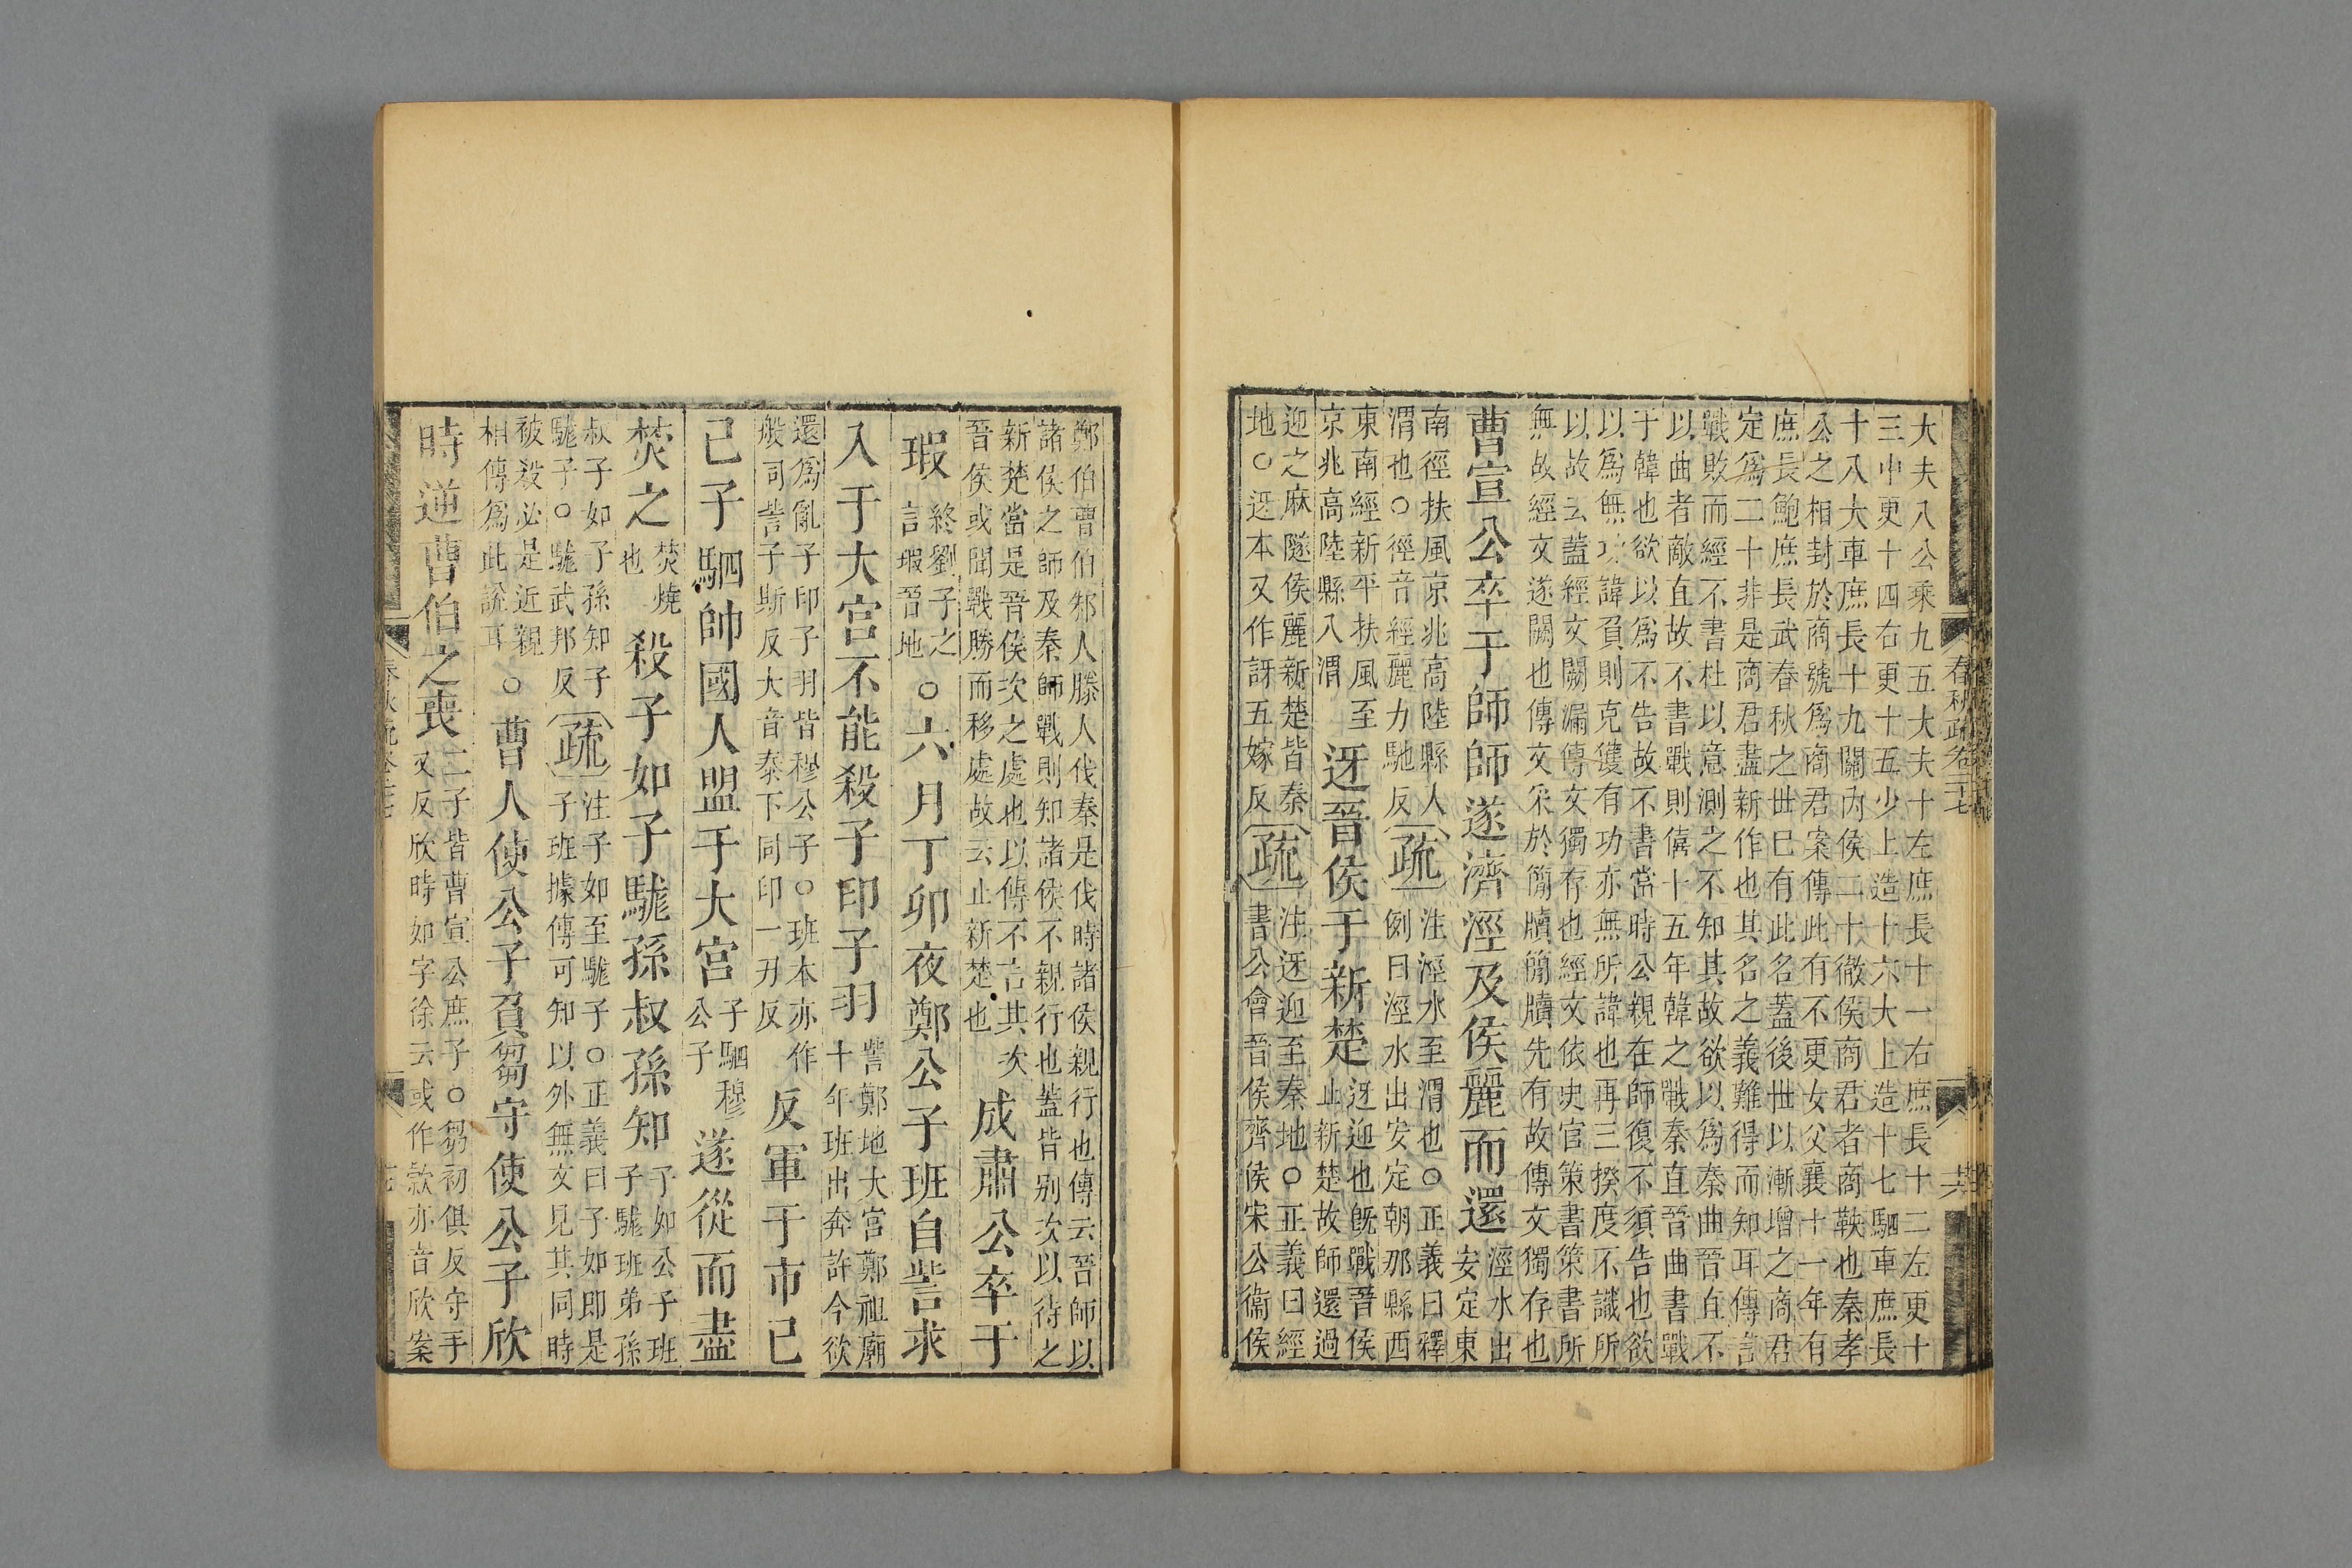 大夫八公乗九五大夫十左庶長十一右庶長十二左更十
三中更十四右更十五少上造十六大上造十七駟車庶長
十八大車庶長十九關內侯二十徹侯商君者商鞅也秦孝
公之相封於商號爲商君案傳此有不更女父襄十一年有
庶長鮑庶長武春秋之世巳有此名蓋後世以漸增之商君
定爲二十非是商君盡新作也其名之義難得而知耳傳言
戰敗而經不書杜以意測之不知其故欲以爲秦曲晉直不
以曲者敵直故不書戰則僖十五年韓之戰秦直晉曲書戰
于韓也欲以爲不告故不書當時公親在師復不須告也欲
以爲無功諱負則克獲有功亦無所諱也再三揆度不識所
以故云蓋經文闕漏傳文獨存也經文依史官策書策書所
無故經文遂闕也傳文采於簡牘簡牘先有故傳文獨存也
曹宣公卒于師師遂濟涇及侯麗而還 涇水出安定東
南徑扶風京兆高陸縣入
渭也○徑音經麗力馳反 疏 注涇水至渭也○正義曰釋
例曰涇水出安定朝那縣西
東南經新平扶風至
京兆高陸縣入渭 迓晉侯于新楚 迓迎也旣戰晉侯
止新楚故師還過
迎之麻隧侯麗新楚皆秦
地○迓本又作訝五嫁反 疏 注迓迎至秦地○正義曰經
書公會晉侯齊侯宋公衞侯
春秋疏卷二十七
鄭伯曹伯邾人滕人伐秦是伐時諸侯親行也傳云晉師以
諸侯之師及秦師戰則知諸侯不親行也蓋皆别次以待之
新楚當是晉侯次之處也以傳不言其次
晉侯或聞戰勝而移處故云止新楚也 成肅公卒于
瑕 終劉子之
言瑕晉地 ○六月丁卯夜鄭公子班自訾求
入于大宫不能殺子印子羽 訾鄭地大宫鄭祖廟
十年班出奔許今欲
還爲亂子印子羽皆穆公子○班本亦作
般司訾子斯反大音泰下同印一刃反 反軍于市己
巳子駟帥國人盟于大宫 子駟穆
公子 遂從而盡
焚之 焚燒
也 殺子如子駹孫叔孫知 子如公子班
子駹班弟孫
叔子如子孫知子
駹子○駹武邦反 疏 注子如至駹子○正義曰子如即是
子班據傳可知以外無文見其同時
被殺必是近親
相傳爲此説耳 ○曹人使公子負芻守使公子欣
時逆曹伯之喪 二子皆曹宣公庶子○芻初俱反守手
又反欣時如字徐云或作款亦音欣案